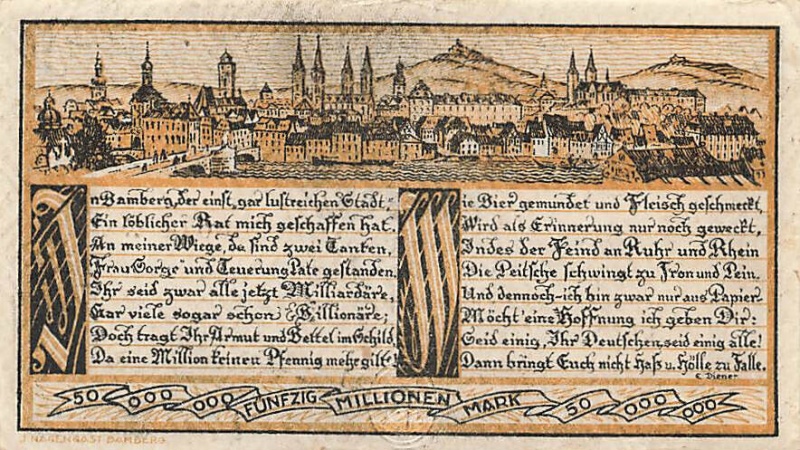 In Bamberg, der einst, gar lustreichen Stadt
Ein löblicher Rat mich geschaffen hat.
An meiner Wiege, da sind zwei Tanten,
Frau Sorge und Teuerung Pate gestanden.
Ihr seid zwar alle jetzt Milliardäre,
Gar viele sogar schon Billionäre;
Doch tragt Ihr Armut und Bettel im Schild,
Da eine Million keinen Pfennig mehr gilt!
Wie Bier gemundet und Fleisch geschmeckt,
Wird als Erinnerung nur noch geweckt,
Indes der Feind an Ruhr und Rhein
Die Peitsche schwingt zu Fron und Pein.
Und dennoch-ich bin zwar nur aus Papier-
Möcht' eine Hoffnung ich geben Dir:
Seid einig, Ihr Deutschen, seid einig alle!
Dann bringt Euch nicht Haß u. Hölle zu Falle.
C. Diener
50 000 000 FÜNFZIG MILLIONEN MARK 50 000 000
J. NAGENGAST BAMBERG